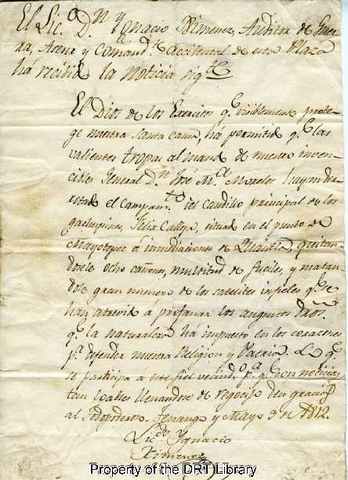 El Lic.do D.n Ygnacio Ximenez, Auditor de Guer-
ra, Asesor y Comand.te accidental de esta Plaza
ha recibido la noticia sig.te
El Dios de los Exercitos q.e visiblemente prote-
ge nuestra santa causa, ha permitido q.e las
valientes tropas al mando de nuestro inven-
cible General D.n José M.a Morelos
el Campam.to del caudillo principal de los
gachupines, Felix Calleja, situado en el punto de
inmediaciones de quitan-
dole ocho cañones, multitud de fusiles, y matan-
dole gran numero de los satelites infieles q.e se
han atrevido a profanar los augustos dros.
q.e la naturaleza ha impreso en los corazones
p.a defender nuestra Religion y Patria. Lo q.e
se participa a este fiel vecind.o p.a q.e con noticia
tan llenandose de regocijo den gracias
al Todopoderoso. Tenango y Mayo 3 de 1812.
Lic.do Ygnacio
Ximenez
Property of the DRT Library